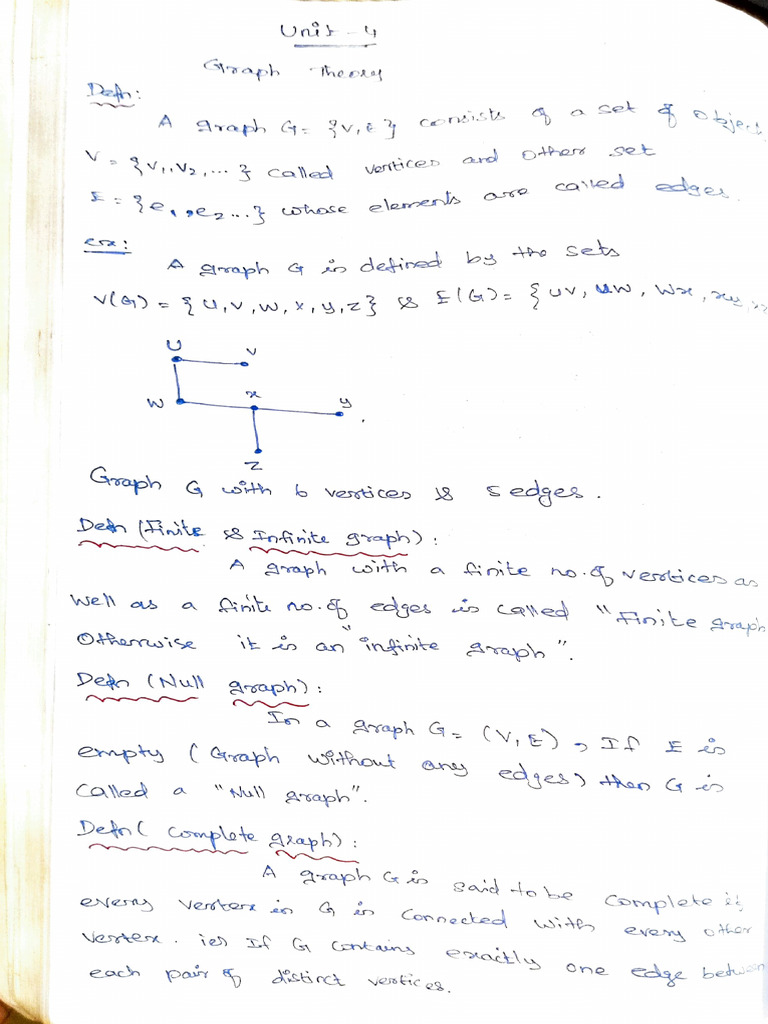 Unit - 4
Graph Theory
Defn:
A graph G = {V, E} consists of a set of object
V = {V1, V2, ...} called vertices and other set
E = {e1, e2 ...} whose elements are called edges.
ex:
A graph G is defined by the sets
V(G) = {U, V, W, x, y, z} & E(G) = {UV, UW, Wx, xy,
U V
W x y
Z
Graph G with 6 vertices & 5 edges.
Defn (Finite & Infinite graph):
A graph with a finite no. of vertices as
well as a finite no. of edges is called "Finite graph
Otherwise it is an "infinite graph".
Defn (Null graph):
In a graph G = (V, E), If E is
empty (Graph without any edges) then G is
called a "Null graph".
Defn (complete graph):
A graph G is said to be complete if
every vertex in G is connected with every other
vertex. ie) If G contains exactly one edge between
each pair of distinct vertices.